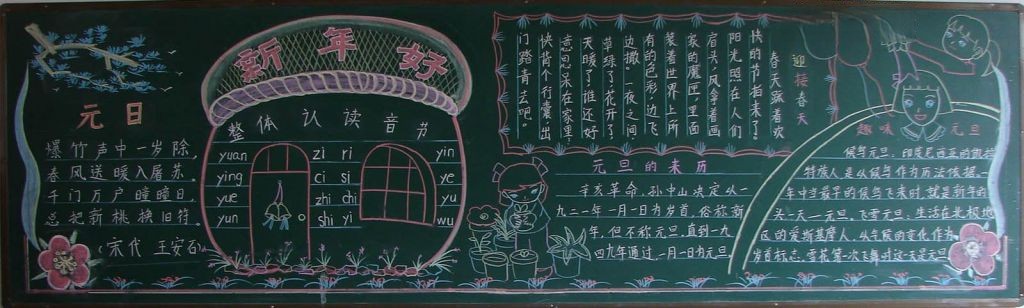 元日
爆竹声中一岁除,
春风送暖入屠苏.
千门万户曈曈日,
总把新桃换旧符.
(宋代 王安石)
新年好
整体认读音节
yuan zi ri yin
ying ci si ye
yue zhi chi yu
yun shi yi wu
迎接春天
春天踩着欢
快的节拍来了。
阳光照在人们
肩头,风拿着画
家的魔匣,里面
装着世界上所
有的色彩,边飞
边撒。一夜之间,
草绿了,花开了,
天暖了,谁还好
意思呆在家里,
快背个行囊出
门踏青去吧。
元旦的来历
辛亥革命,孙中山决定从一
九二一年一月一日为岁首,俗称新
年,但不称元旦,直到一九
四九年通过一月一日为元旦.
趣味元旦
候鸟元旦:印度尼西亚的
特族人是以候鸟作为历法依据,一
年中当最早的候鸟飞来时,就是新年的
头一天—元旦.飞雪元旦:生活在北极地
区的爱斯基摩人,以气候的变化作为
岁首标志,雪花第一次飞舞时这天是元旦